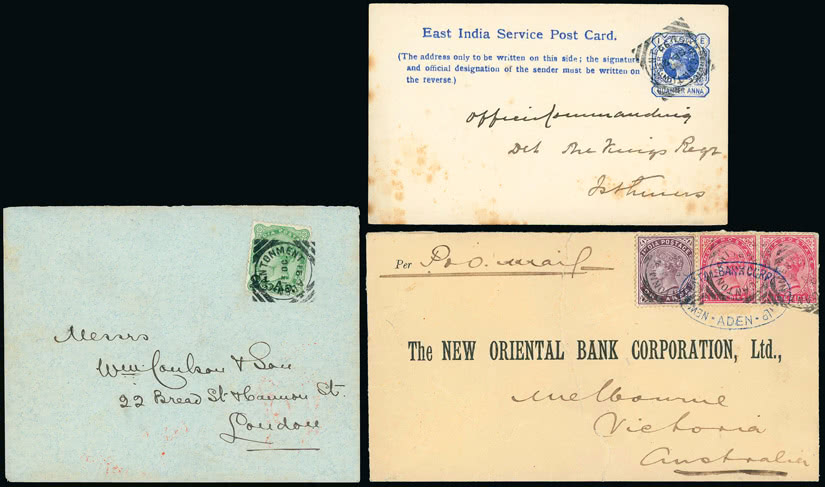 East India Service Post Card.
(The address only to be written on this side; the signature
and official designation of the sender must be written on
the reverse.)
QUARTER ANNA
Officer Commanding
Det The Kings Regt
Isthmus
Messrs
Wm Coulson & Son
22 Bread St & Cannon St.
London
Per P&O. Mail
INDIA POSTAGE
BANK CORP
ADEN
The NEW ORIENTAL BANK CORPORATION, Ltd.,
Melbourne
Victoria
Australia